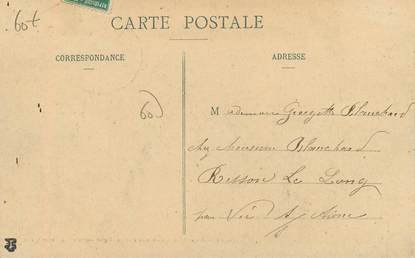 60t
CARTE POSTALE
CORRESPONDANCE
ADRESSE
60
Mademoiselle Georgette Blanchard
chez Monsieur Blanchard
Resson Le Long
par Vic s/ Aisne